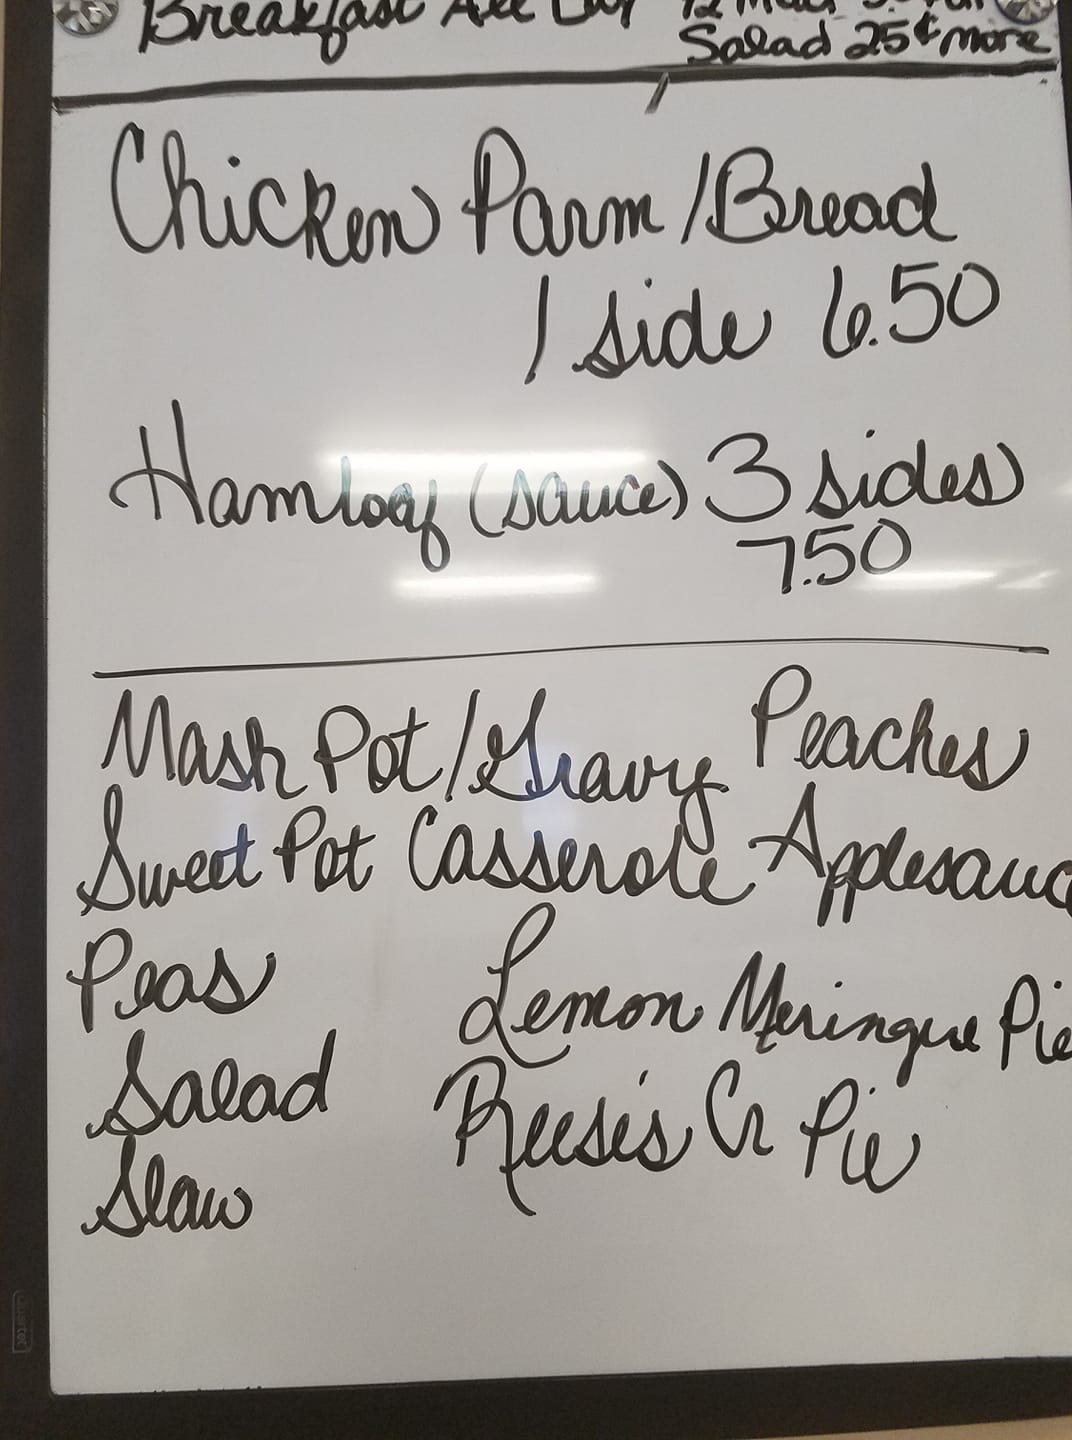 Breakfast All Day
Salad 25¢ more
Chicken Parm/Bread
1 side 6.50
Hamloaf (sauce) 3 sides
7.50
Mash Pot/Gravy Peaches
Sweet Pot Casserole Applesauc
Peas Lemon Meringue Pie
Salad Reese's Cr Pie
Slaw